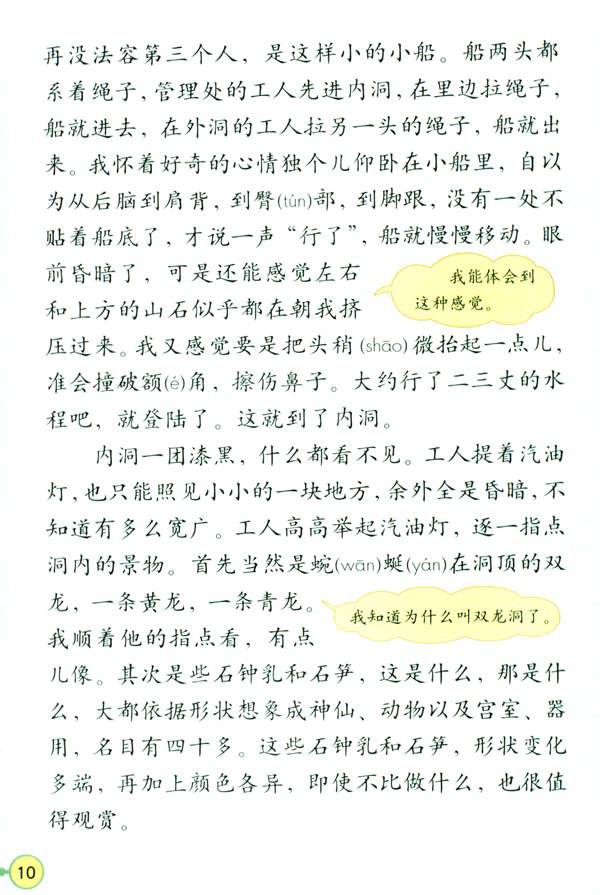 再没法容第三个人，是这样小的小船。船两头都
系着绳子，管理处的工人先进内洞，在里边拉绳子，
船就进去，在外洞的工人拉另一头的绳子，船就出
来。我怀着好奇的心情独个儿仰卧在小船里，自以
为从后脑到肩背，到臀(tún)部，到脚跟，没有一处不
贴着船底了，才说一声“行了”，船就慢慢移动。眼
前昏暗了，可是还能感觉左右
和上方的山石似乎都在朝我挤
我能体会到
这种感觉。
压过来。我又感觉要是把头稍(shāo)微抬起一点儿，
准会撞破额(é)角，擦伤鼻子。大约行了二三丈的水
程吧，就登陆了。这就到了内洞。
内洞一团漆黑，什么都看不见。工人提着汽油
灯，也只能照见小小的一块地方，余外全是昏暗，不
知道有多么宽广。工人高高举起汽油灯，逐一指点
洞内的景物。首先当然是蜿(wān)蜒(yán)在洞顶的双
龙，一条黄龙，一条青龙。
我顺着他的指点看，有点
我知道为什么叫双龙洞了。
儿像。其次是些石钟乳和石笋，这是什么，那是什
么，大都依据形状想象成神仙、动物以及宫室、器
用，名目有四十多。这些石钟乳和石笋，形状变化
多端，再加上颜色各异，即使不比做什么，也很值
得观赏。
10